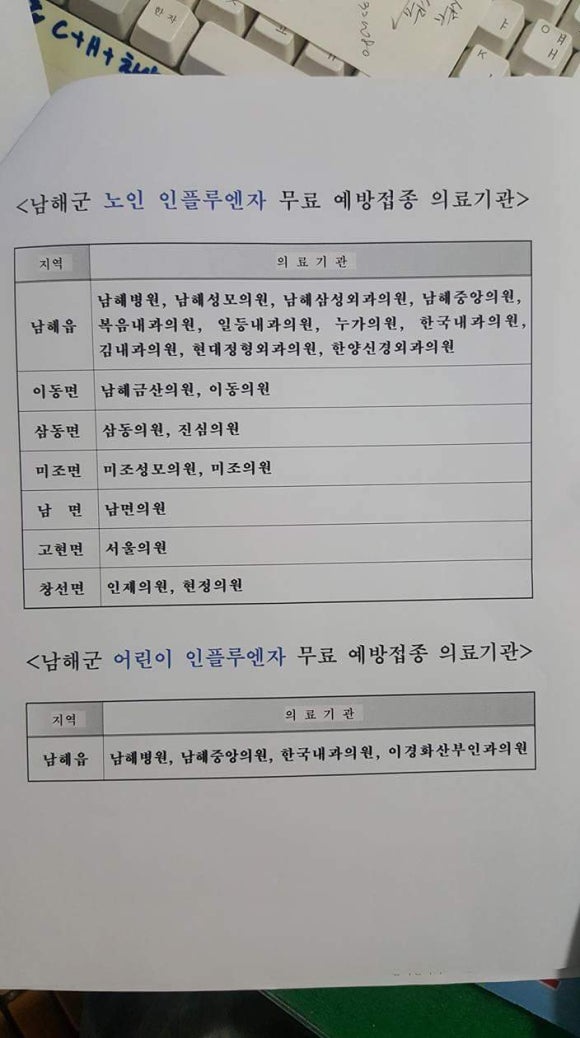 한자
C+A+
<남해군 노인 인플루엔자 무료 예방접종 의료기관>
지역 의 료 기 관
남해읍 남해병원, 남해성모의원, 남해삼성외과의원, 남해중앙의원,
복음내과의원, 일등내과의원, 누가의원, 한국내과의원,
김내과의원, 현대정형외과의원, 한양신경외과의원
이동면 남해금산의원, 이동의원
삼동면 삼동의원, 진심의원
미조면 미조성모의원, 미조의원
남 면 남면의원
고현면 서울의원
창선면 인제의원, 현정의원
<남해군 어린이 인플루엔자 무료 예방접종 의료기관>
지역 의 료 기 관
남해읍 남해병원, 남해중앙의원, 한국내과의원, 이경화산부인과의원